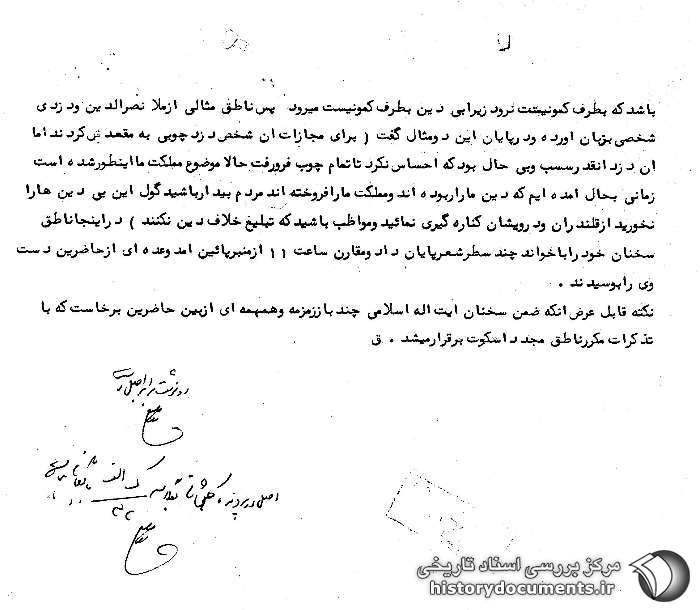 باشد که بطرف کمونیست نرود زیرابی دین بطرف کمونیست میرود پس ناطق مثالی ازملا نصرالدین ودزدی
شخصی بزبان اورده ودرپایان این دومثال گفت ( برای مجازات ان شخص دزدچوبی به مقعدش کردند اما
ان دزدانقدرسسب وبی حال بودکه احساس نکرد تاتمام چوب فرورفت حالا موضوع مملکت مااینطورشده است
زمانی بحال امده ایم که دین ماراربوده اند ومملکت مارافروخته اند مردم بیدارباشیدگول این بی دین هارا
نخورید ازقلندران ودرویشان کناره گیری نمائید ومواظب باشیدکه تبلیغ خلاف دین نکنند ) دراینجاناطق
سخنان خودراباخواند چند سطرشعرپایان داد ومقارن ساعت ۱۱ ازمنبرپائین امدوعده ای ازحاضرین دست
وی رابوسیدند .
نکته قابل عرض انکه ضمن سخنان ایت اله اسلامی چند باززمزمه وهمهمه ای ازبین حاضرین برخاست که با
تذکرات مکررناطق مجدداسکوت برقرارمیشد . ق
رونوشت برابر اصل است
اصل در پرونده
مرکز بررسی اسناد تاریخی
historydocuments.ir